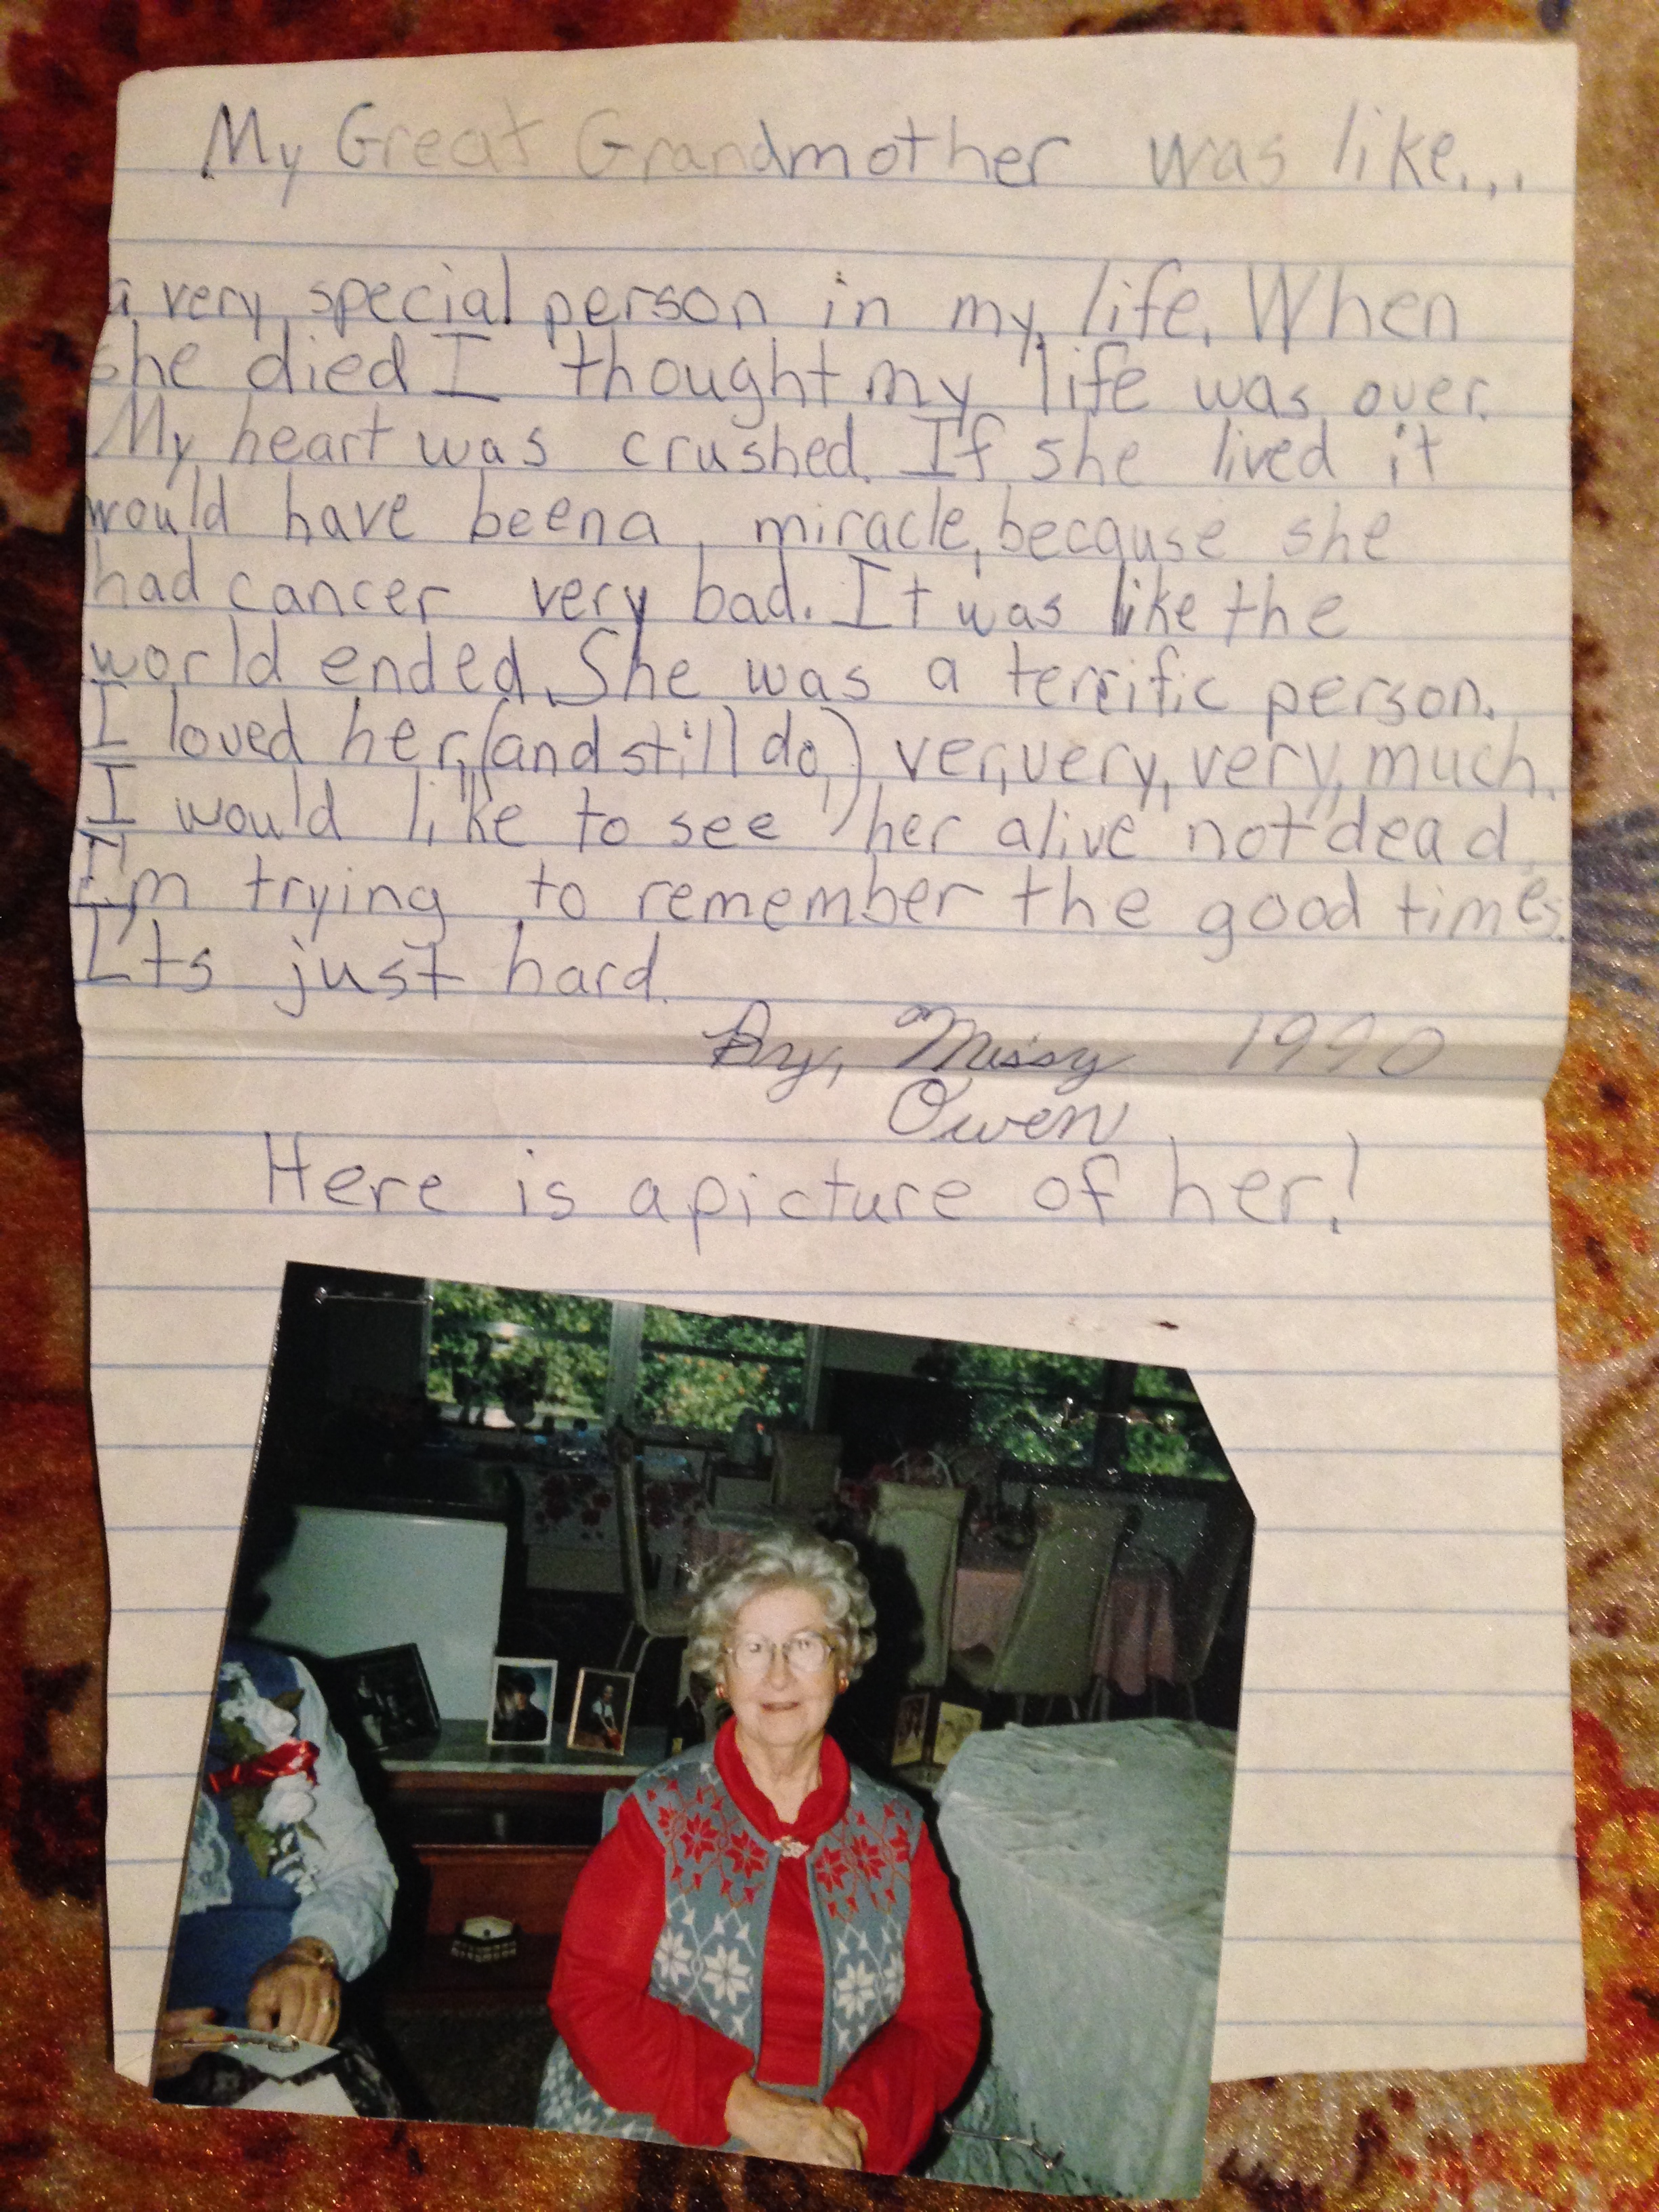 My Great Grandmother was like...
a very special person in my life. When
she died I thought my life was over.
My heart was crushed. If she lived it
would have been a miracle, because she
had cancer very bad. It was like the
world ended. She was a terrific person.
I loved her, (and still do,) very, very, very, much.
I would like to see her alive not dead.
I'm trying to remember the good times.
It's just hard.
By, Missy 1990
Owen
Here is a picture of her!